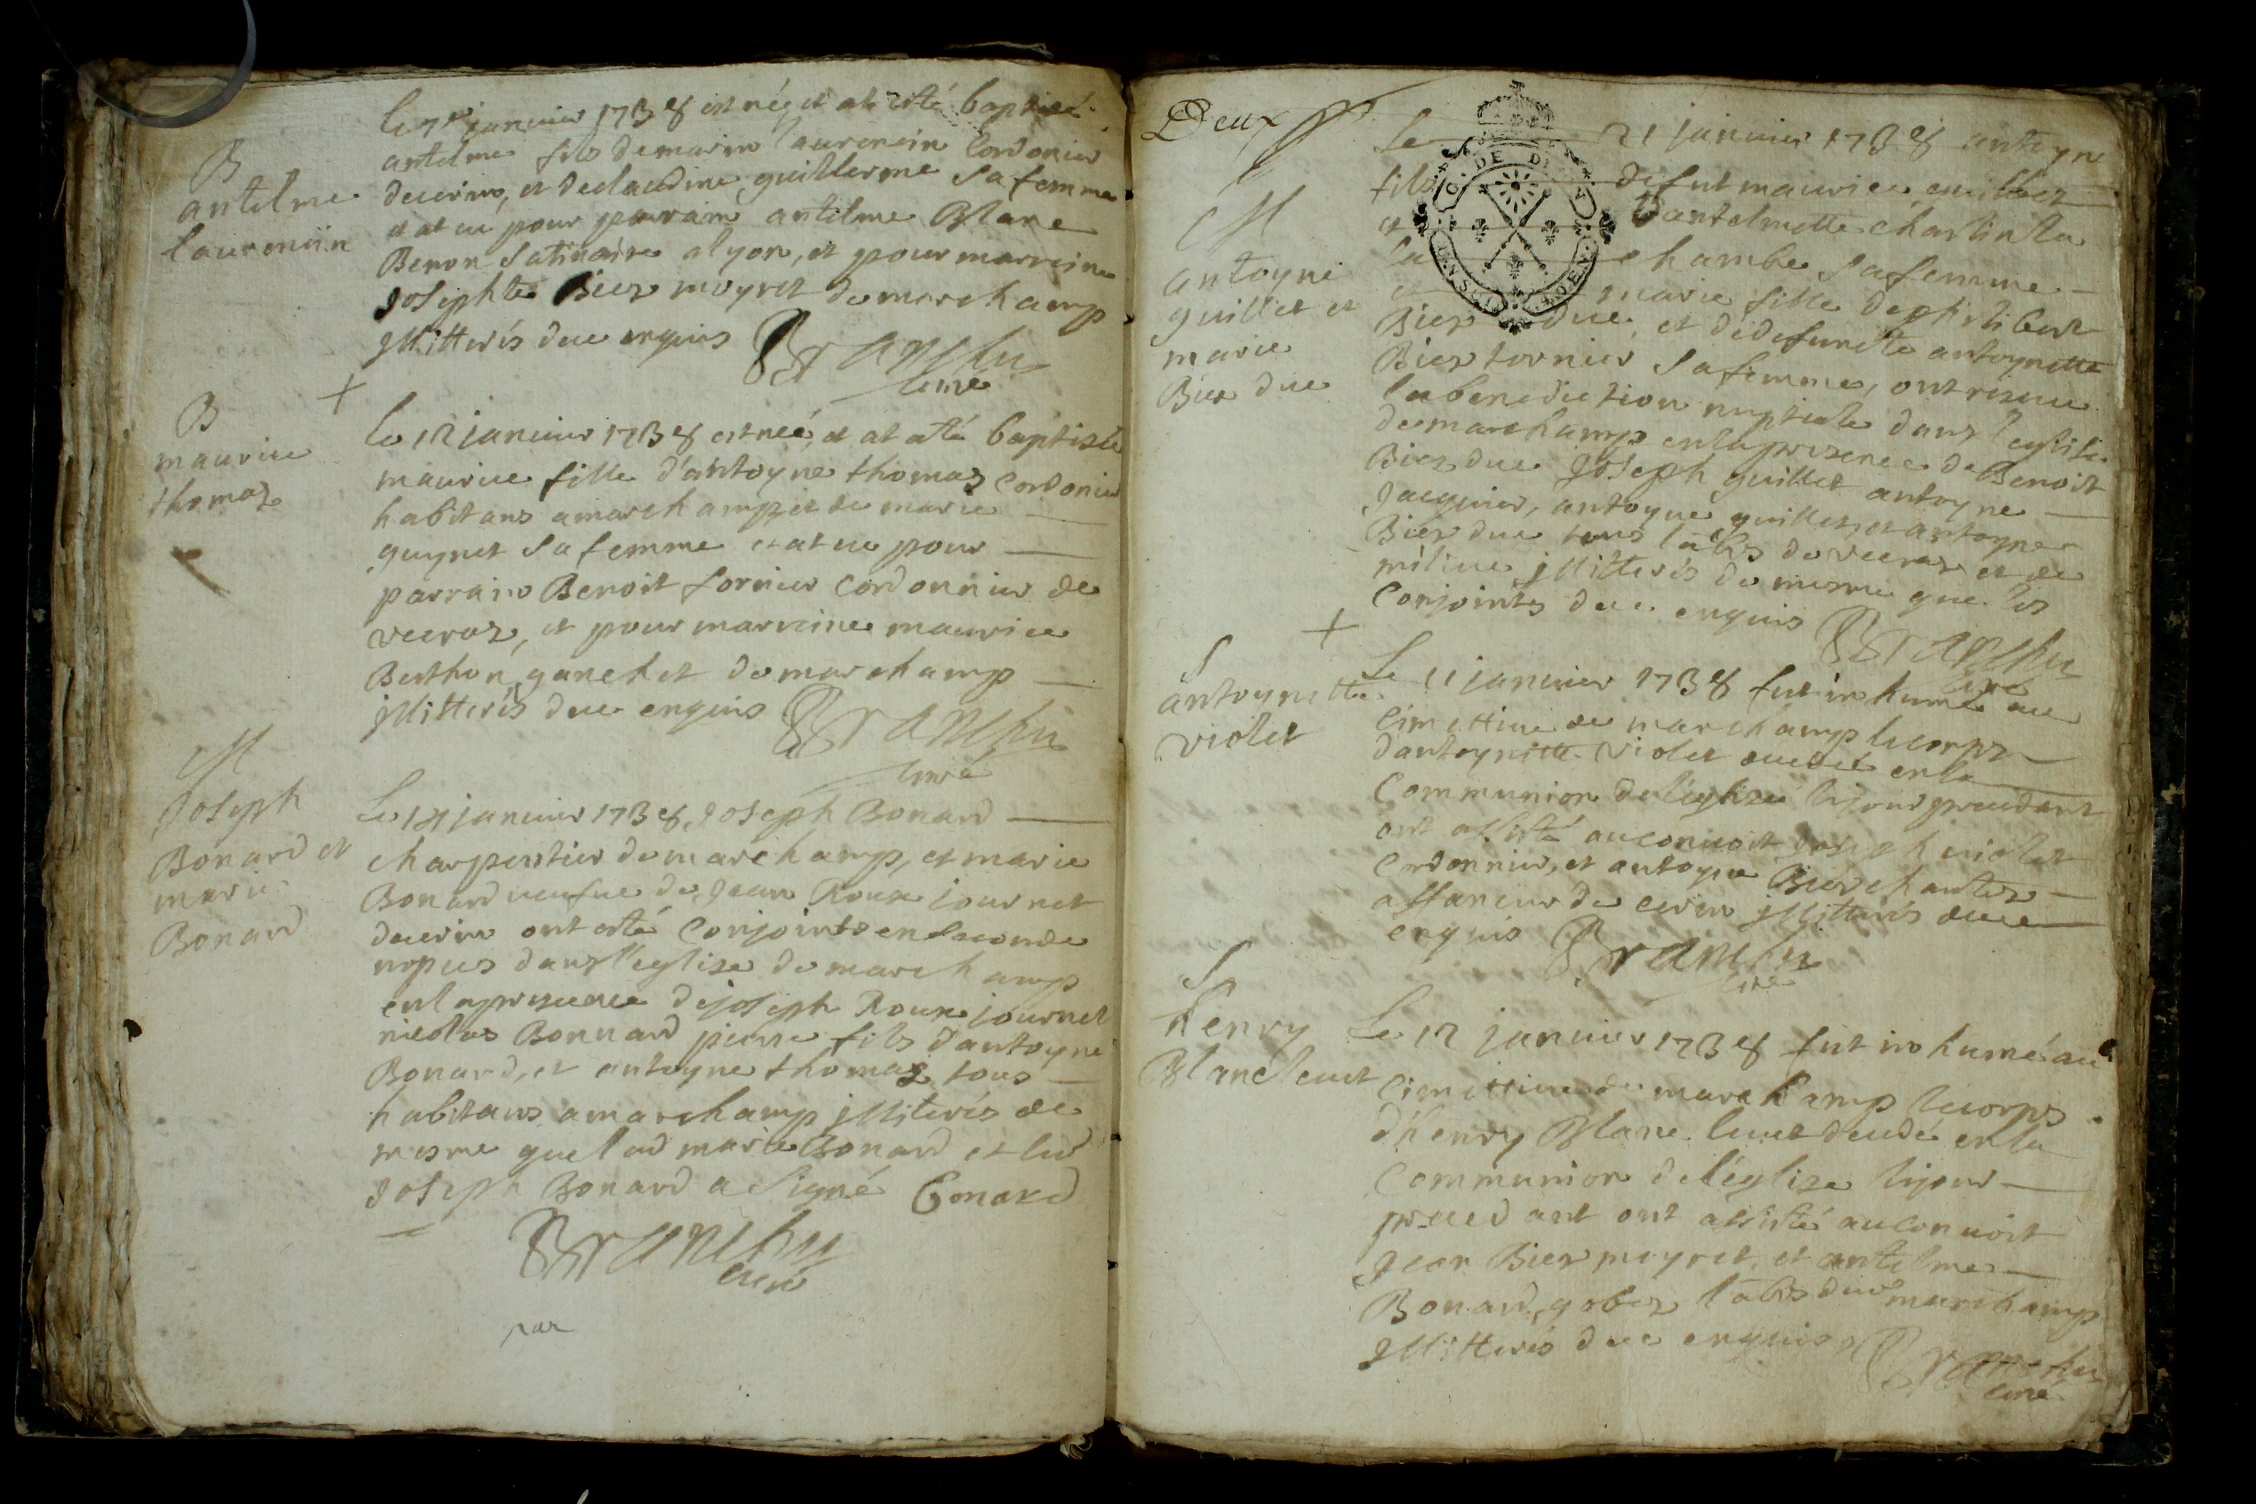 B
antelme
laurencin
le 7 janvier 1738 est né, et at esté baptisé
antelme fils de marin laurencin Cordonier
de cerin, et de claudine guillerme sa femme
et at eu pour parrain antelme Blanc
Benon Satinaire a lyon, et pour marreine
Josephte Biez moyret de marchamp
Illitterés de ce enquis Branchu
curé
B
maurice
thomas
le 12 janvier 1738 est née, et at esté baptisée
maurice fille d'antoyne thomas Cordonier
habitans a marchamp, et de marie
guynet sa femme et at eu pour
parrain Benoit fornier Cordonnier de
vecraz, et pour marreine maurice
Berthon ganchet de marchamp
Illitterés de ce enquis Branchu
curé
M
Joseph
Bonard et
marie
Bonard
Le 14 janvier 1738 Joseph Bonard
charpentier de marchamp, et marie
Bonard veufue de Jean Roux journet
de cerin ont esté Conjoints en seconde
nopces dans l'eglize de marchamp
en la presence de joseph Roux journet
nicolas Bonnard pierre fils d'antoyne
Bonard, et antoyne thomas tous
habitans a marchamp illiterés de
mesme que lad marie Bonard et led
Joseph Bonard a signé Bonard
Branchu
curé
par
Deux
M
antoyne
guillet et
marie
Biez duc
Le 21 janvier 1738 antoyne
fils defut maurice guillet
et d'antelmette charlin de
la chambe sa femme
et marie fille de philibert
Biez duc, et de defuncte antoynette
Biez fornier sa femme, ont receu
la benediction nuptiale dans l'eglise
de marchamp en la presence de Benoit
Biez duc Joseph guillet antoyne
Jacquier, antoyne guillet, et antoyne
Biez duc tous labrs de vecraz et de
milieu illitterés de mesme que les
Conjoints de ce enquis Branchu
curé
S
antoynette
violet
Le 11 janvier 1738 fut inhumé au
Cimettiere de marchamp le corps
d'antoynette violet decedé en la
Communion de l'eglize le jour precedant
ont assisté au convoit joseph violet
Cordonnier, et antoyne Biez chanter
affaneur de cerin illitterés de ce
enquis Branchu
curé
S
henry
Blanc leuet
Le 12 janvier 1738 fut inhumé au
Cimettiere de marchamp le corps
d'henry Blanc leuet decedé en la
Communion de l'eglize le jour
precedant ont assisté au convoit
Jean Biez moyret, et antelme
Bonard gobez labrs dud marchamp
Illitterés de ce enquis Branchu
curé